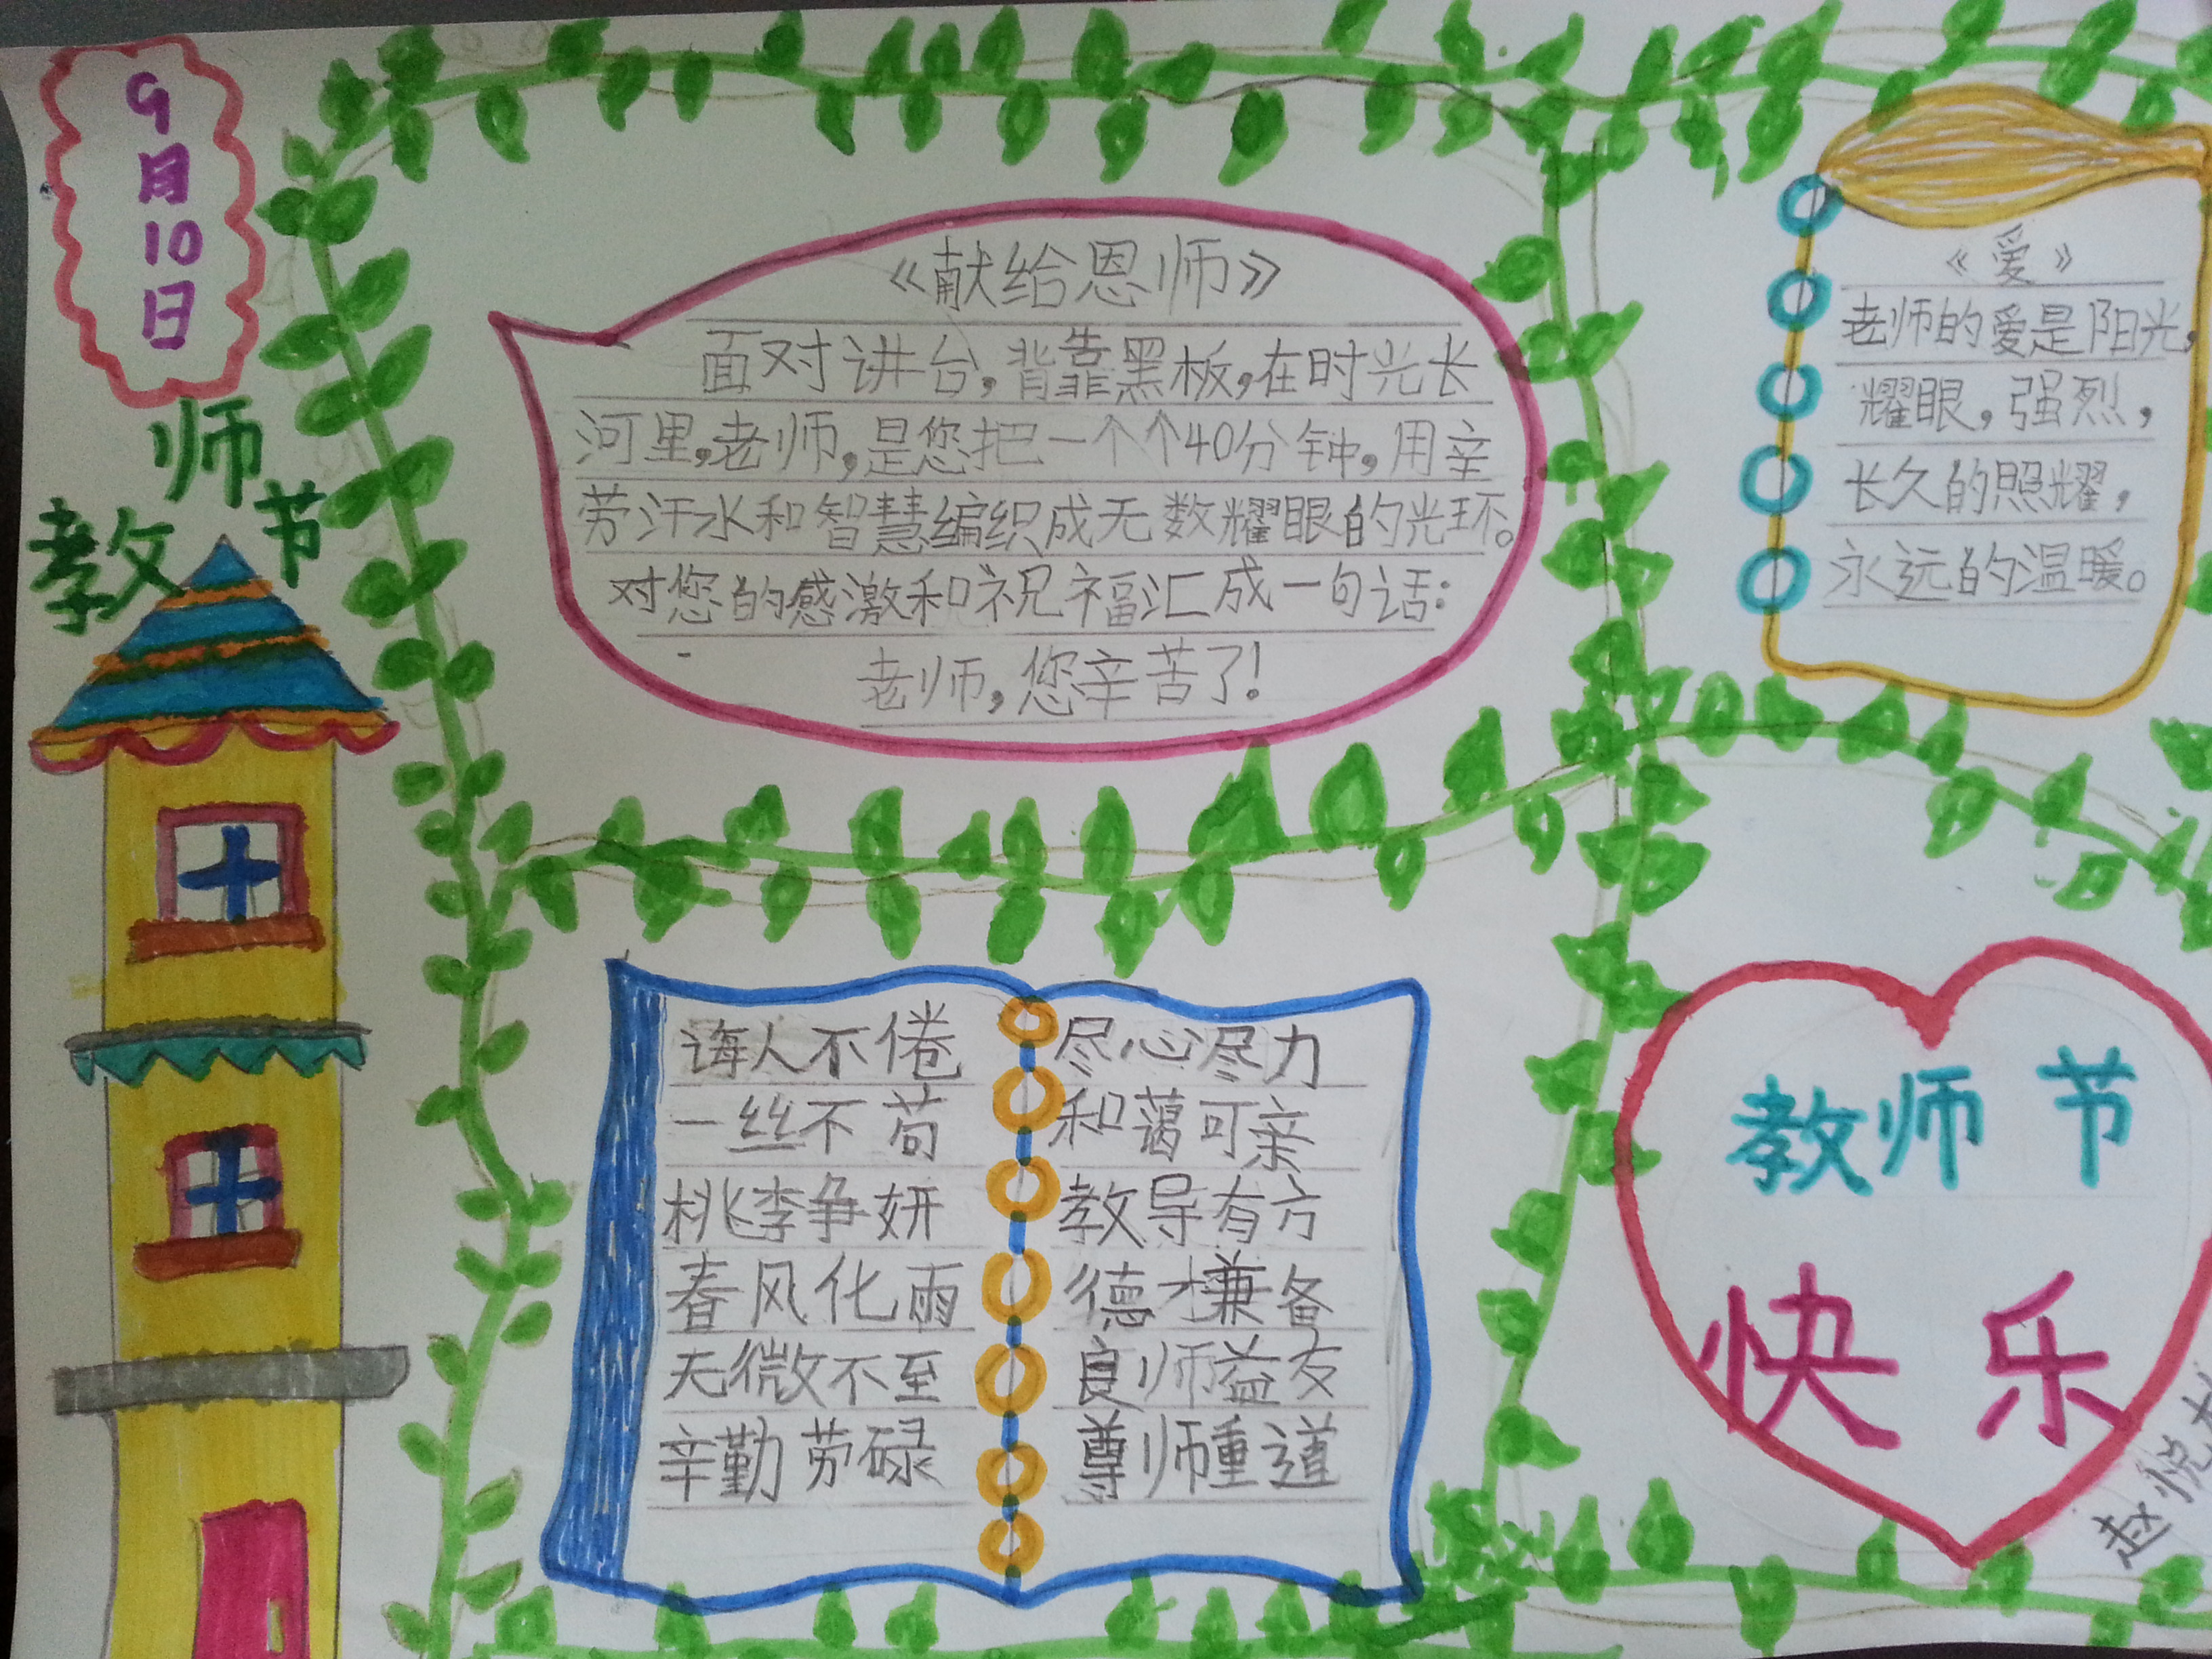 9月10日
教师节
《献给恩师》
面对讲台,背靠黑板,在时光长
河里,老师,是您把一个个40分钟,用辛
劳汗水和智慧编织成无数耀眼的光环。
对您的感激和祝福汇成一句话:
老师,您辛苦了!
《爱》
老师的爱是阳光,
耀眼,强烈,
长久的照耀,
永远的温暖。
诲人不倦
一丝不苟
桃李争妍
春风化雨
无微不至
辛勤劳碌
尽心尽力
和蔼可亲
教导有方
德才兼备
良师益友
尊师重道
教师节
快乐
赵悦